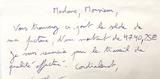 Madame, Monsieur
Vous trouverez ci-joint le solde de
ma facture d'un montant de 4240,75€
je vous remercie pour le travail de
qualité effectué. Cordialement